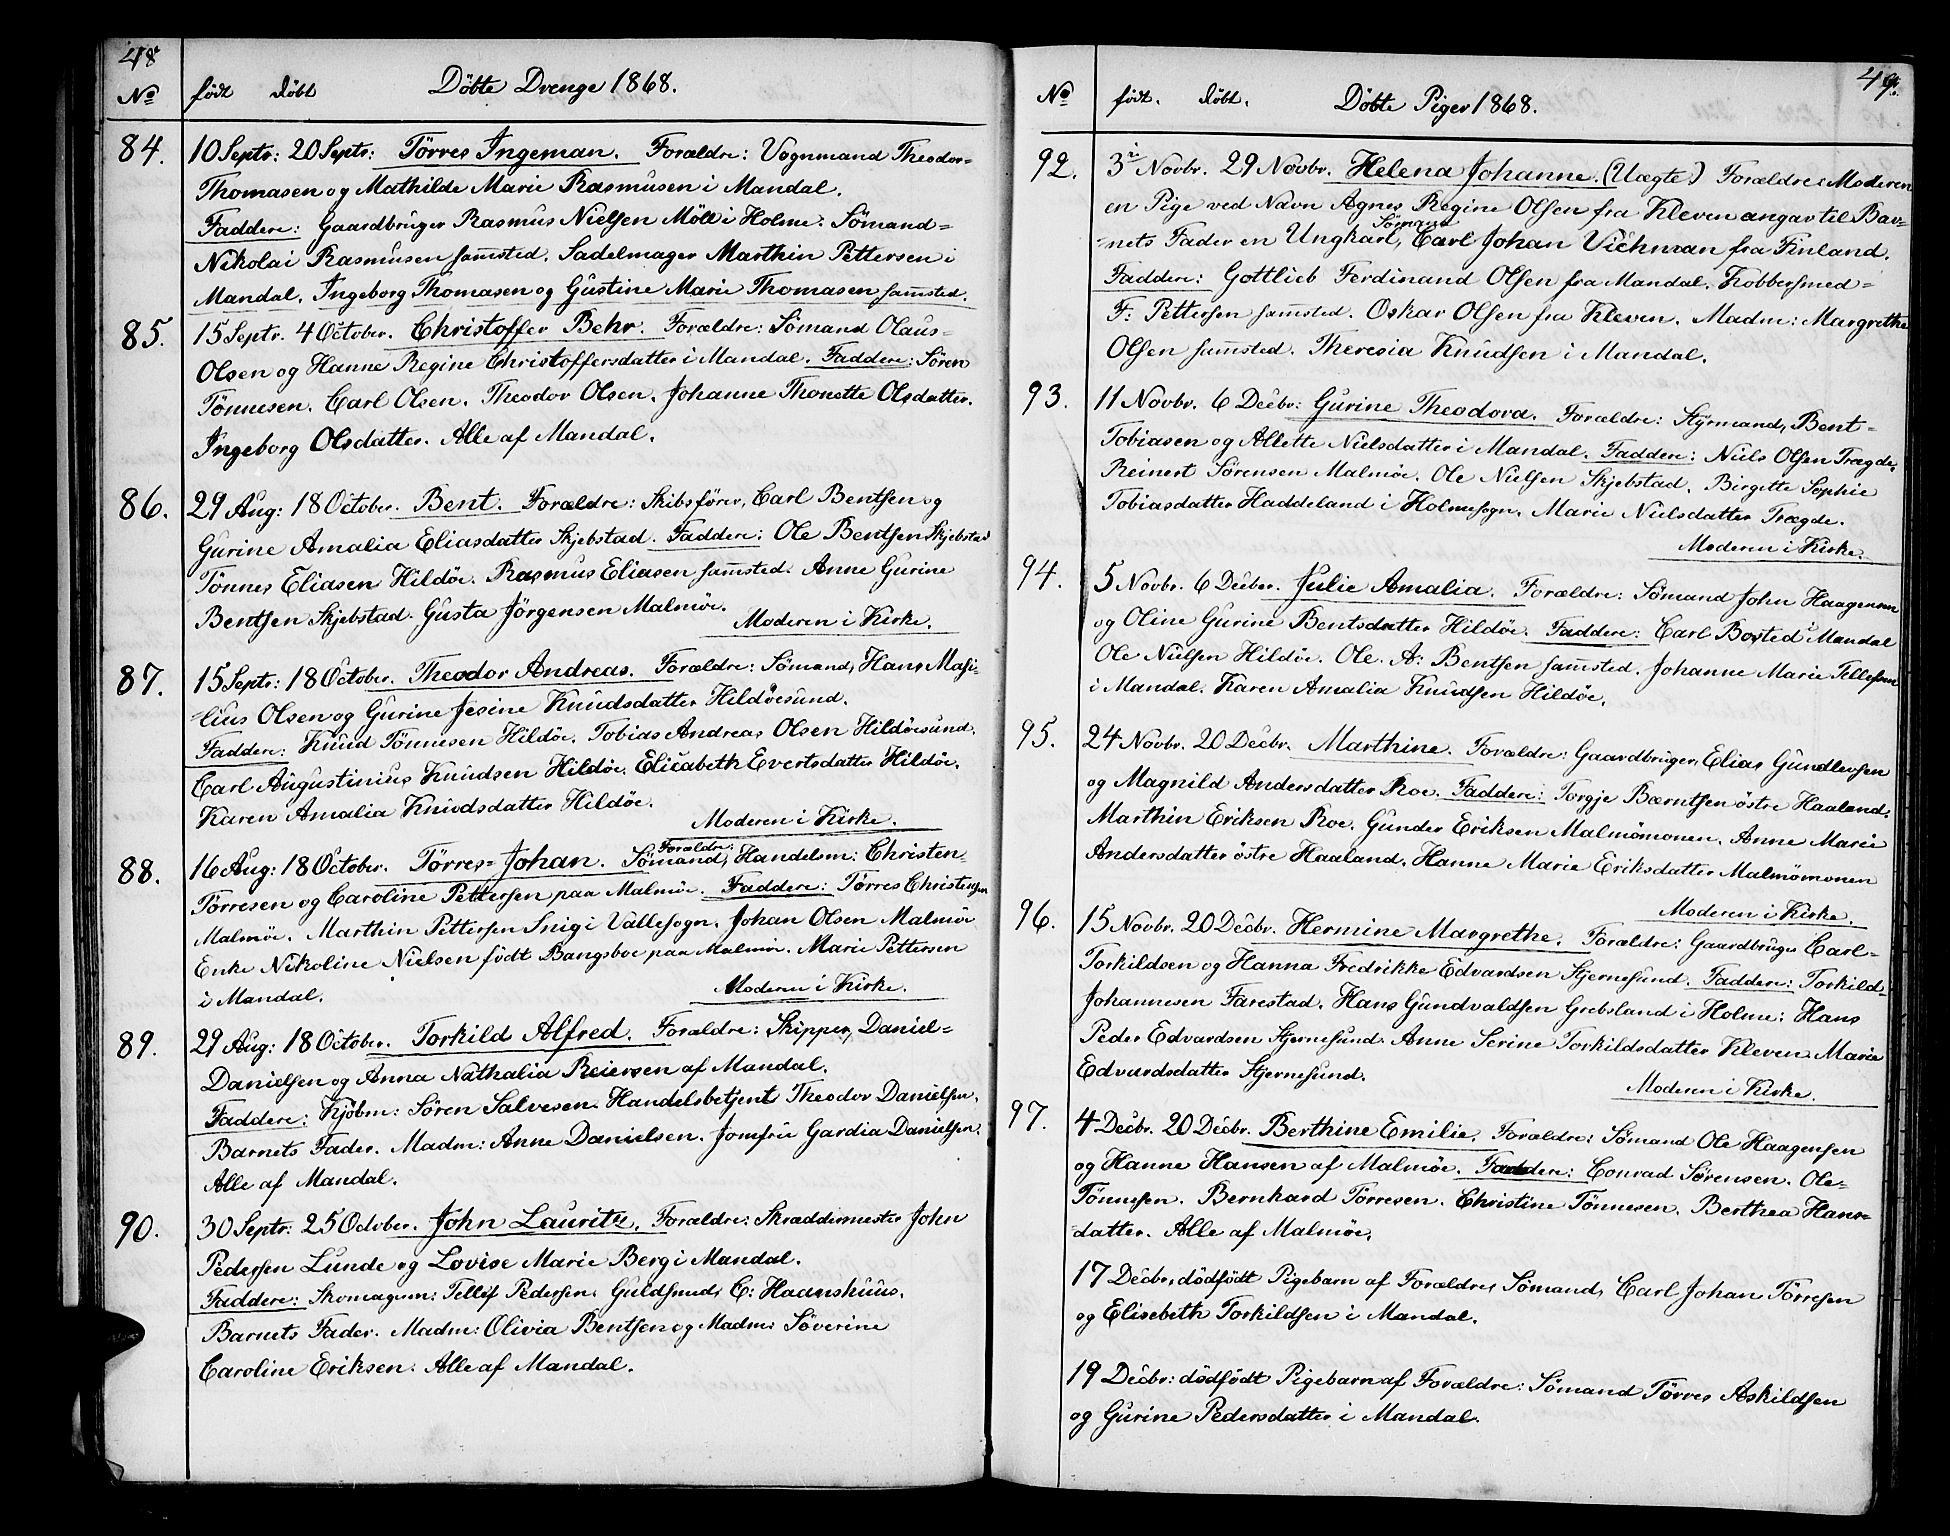 48
No født døbt Döbte Drenge 1868.
84. 10 Septr: 20 Septr: Törres Ingeman. Forældre: Vognmand Theodor=
Thomasen og Mathilde Marie Rasmusen i Mandal.
Faddere: Gaardbruger Rasmus Nielsen Möll i Holme. Sömand=
Nikolai Rasmusen samsted. Sadelmager Marthin Pettersen i
Mandal. Ingeborg Thomasen og Gustine Marie Thomasen samsted.
85. 15 Septr. 4 October. Christoffer Behr. Forældre: Sömand Olaus=
Olsen og Hanne Regine Christoffersdatter i Mandal. Faddere: Sören
Tönnesen. Carl Olsen. Theodor Olsen. Johanne Thonette Olsdatter.
Ingeborg Olsdatter. Alle af Mandal.
86. 29 Aug: 18 October. Bent. Forældre: Skibsförer, Carl Bentsen og
Gurine Amalia Eliasdatter Skjebstad. Faddere: Ole Bentsen Skjebstad
Tönnes Eliasen Hildöe. Rasmus Eliasen samsted. Anne Gurine
Bentsen Skjebstad. Gusta Jörgensen Malmöe.
Moderen i Kirke.
87. 15 Septr: 18 October. Theodor Andreas. Forældre: Sömand, Hans Masi=
=lius Olsen og Gurine Jesine Knudsdatter Hildöesund.
Faddere: Knud Tönnesen Hildöe. Tobias Andreas Olsen Hildöesund.
Carl Augustinius Knudsen Hildöe. Elisabeth Evertsdatter Hildöe.
Karen Amalia Knudsdatter Hildöe.
Moderen i Kirke.
Forældre:
88. 16 Aug: 18 October. Törres=Johan. Sömand, Handelsm: Christen=
Törresen og Caroline Pettersen paa Malmöe. Faddere: Törres Christensen
Malmöe. Marthin Pettersen Snig i Vallesogn. Johan Olsen Malmöe
Enke Nikoline Nielsen födt Bangsboe paa Malmöe. Marie Pettersen
i Mandal.
Moderen i Kirke.
89. 29 Aug: 18 October. Torkild Alfred. Forældre: Skipper, Daniel=
Danielsen og Anna Nathalia Reiersen af Mandal.
Faddere: Kjöbm: Sören Salvesen. Handelsbetjent Theodor Danielsen.
Barnets Fader. Madm: Anne Danielsen. Jomfru Gardia Danielsen.
Alle af Mandal.
90. 30 Septr: 25 October. John Lauritz. Forældre: Skræddermester John
Pedersen Lunde og Lovise Marie Berg i Mandal.
Faddere: Skomagerm: Tellef Pedersen. Guldsmed, C: Haanshuus.
Barnets Fader. Madm: Olivia Bentsen og Madm: Söverine
Caroline Eriksen. Alle af Mandal.
49.
No født. døbt. Döbte Piger 1868.
92. 3i Novbr. 29 Novbr. Helena Johanne. (Uægte) Forældre: Moderen
en Pige ved Navn Agnes Regine Olsen fra Kleven angav til Bar=
Sömand
=nets Fader en Ungkarl, Carl Johan Vichman fra Finland.
Faddere: Gottlieb Ferdinand Olsen fra Mandal. Kobbersmed=
F: Pettersen samsted. Oskar Olsen fra Kleven. Madm: Margrethe
Olsen samsted. Theresia Knudsen i Mandal.
93. 11 Novbr. 6 Decbr: Gurine Theodora. Forældre: Styrmand, Bent=
Tobiasen og Allette Nielsdatter i Mandal. Faddere: Niels Olsen Trægde.
Reinert Sörensen Malmöe. Ole Nielsen Skjebstad. Birgette Sophie
Tobiasdatter Haddeland i Holmesogn. Marie Nielsdatter Trægde.
Moderen i Kirke.
94. 5 Novbr. 6 Decbr. Julie Amalia. Forældre: Sömand John Haagensen
og Oline Gurine Bentsdatter Hildöe. Faddere: Carl Bosted i Mandal
Ole Nielsen Hildöe. Ole. A: Bentsen samsted. Johanne Marie Tellefsen
i Mandal. Karen Amalia Knudsen Hildöe.
95. 24 Novbr. 20 Decbr. Marthine. Forældre: Gaardbruger, Elias Gundlersen
og Magnild Andersdatter Roe. Faddere: Torgje Bærntsen östre Haaland.
Marthin Eriksen Roe. Gunder Eriksen Malmömonen. Anne Marie
Andersdatter östre Haaland. Hanne Marie Eriksdatter Malmömonen
Moderen i Kirke.
96. 15 Novbr. 20 Decbr. Hermine Margrethe. Forældre: Gaardbruger Carl=
Torkildsen og Hanna Fredrikke Edvardsen Stjernesund. Faddere: Torkild=
Johannesen Farestad. Hans Gundvaldsen Grebsland i Holme: Hans
Peder Edvardsen Stjernesund. Anne Serine Torkildsdatter Kleven. Marie
Edvardsdatter Stjernesund.
Moderen i Kirke.
97. 4 Decbr. 20 Decbr. Berthine Emilie. Forældre: Sömand Ole Haagensen
og Hanne Hansen af Malmöe. Faddere: Conrad Sörensen. Ole=
Tönnesen. Bernhard Törresen. Christine Tönnesen. Berthea Hans=
datter. Alle af Malmöe.
17 Decbr. dödfödt Pigebarn af Forældre, Sömand, Carl Johan Törresen
og Elisebeth Torkildsen i Mandal.
19 Decbr: dödfödt Pigebarn af Forældre: Sömand Törres Askildsen
og Gurine Pedersdatter i Mandal.